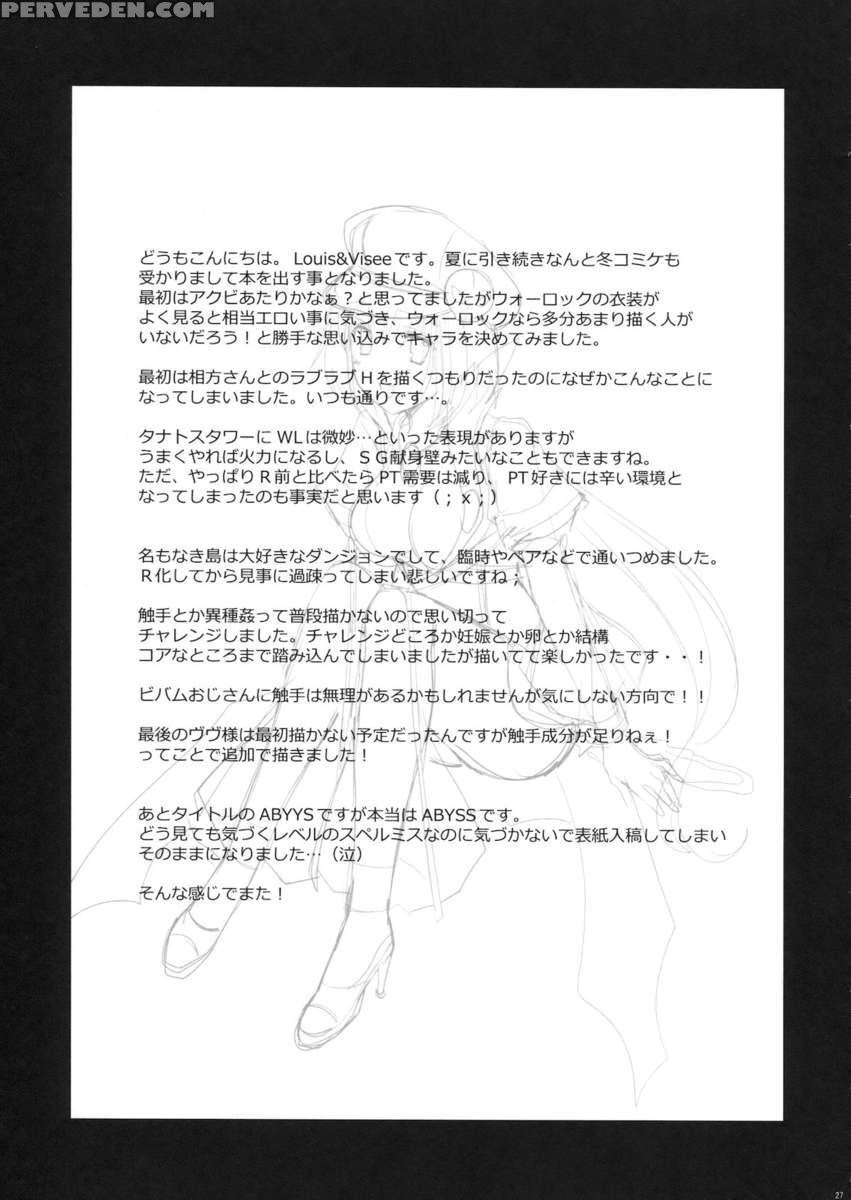 PERVEDEN.COM
どうもこんにちは。Louis&Viseeです。夏に引き続きなんと冬コミケも
受かりまして本を出す事となりました。
最初はアクビあたりかなぁ？と思ってましたがウォーロックの衣装が
よく見ると相当エロい事に気づき、ウォーロックなら多分あまり描く人が
いないだろう！と勝手な思い込みでキャラを決めてみました。
最初は相方さんとのラブラブＨを描くつもりだったのになぜかこんなことに
なってしまいました。いつも通りです…。
タナトスタワーにWLは微妙…といった表現がありますが
うまくやれば火力になるし、ＳＧ献身壁みたいなこともできますね。
ただ、やっぱりＲ前と比べたらPT需要は減り、PT好きには辛い環境と
なってしまったのも事実だと思います（；ｘ；）
名もなき島は大好きなダンジョンでして、臨時やペアなどで通いつめました。
Ｒ化してから見事に過疎ってしまい悲しいですね；
触手とか異種姦って普段描かないので思い切って
チャレンジしました。チャレンジどころか妊娠とか卵とか結構
コアなところまで踏み込んでしまいましたが描いてて楽しかったです・・！
ビバムおじさんに触手は無理があるかもしれませんが気にしない方向で！！
最後のヴヴ様は最初描かない予定だったんですが触手成分が足りねぇ！
ってことで追加で描きました！
あとタイトルのABYYSですが本当はABYSSです。
どう見ても気づくレベルのスペルミスなのに気づかないで表紙入稿してしまい
そのままになりました…（泣）
そんな感じでまた！
27